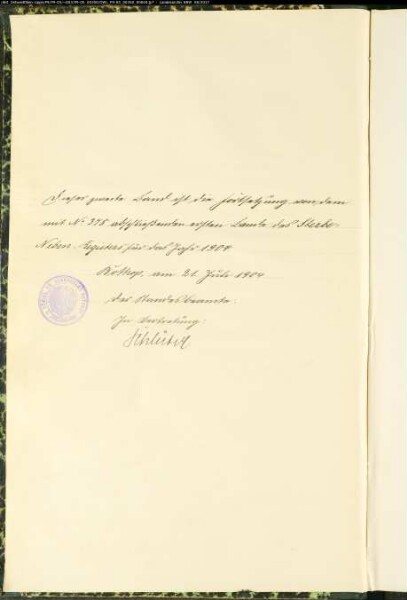 Dieser zweite Band ist die Fortsetzung von dem
mit No. 375 abschließenden ersten Bande des Sterbe-
Neben-Registers für das Jahr 1904
am 21. Juli 1904
Der Standesbeamte.
In Vertretung.
Schlüter